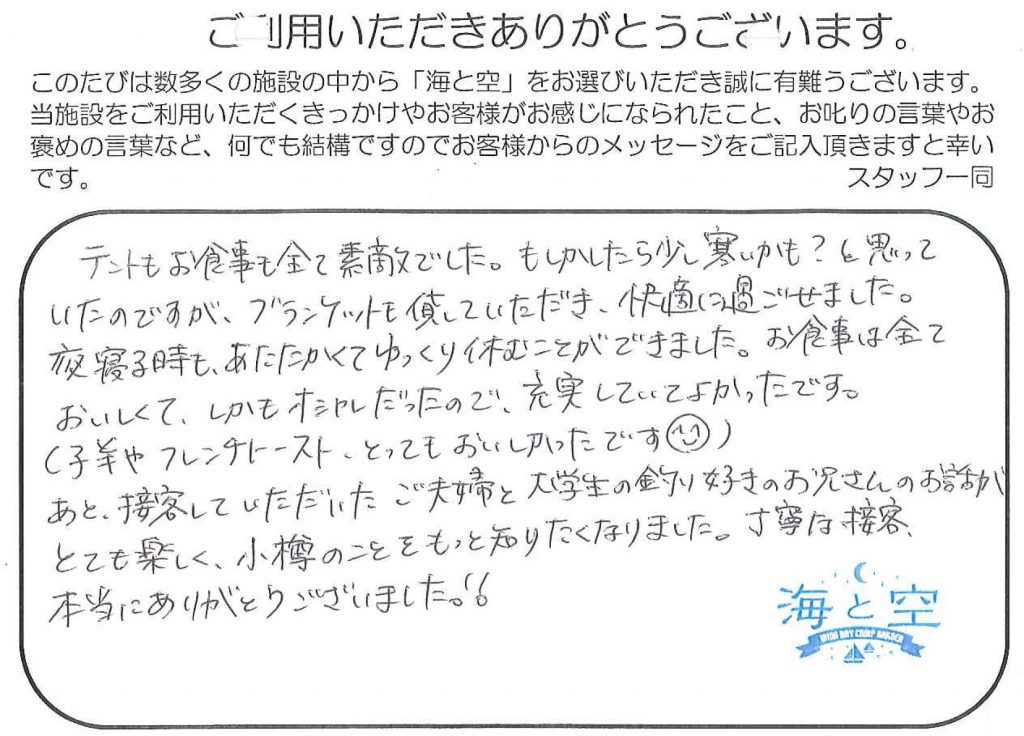 ご利用いただきありがとうございます。
このたびは数多くの施設の中から「海と空」をお選びいただき誠に有難うございます。
当施設をご利用いただくきっかけやお客様がお感じになられたこと、お叱りの言葉やお
褒めの言葉など、何でも結構ですのでお客様からのメッセージをご記入頂きますと幸い
です。 スタッフ一同
テントもお食事も全て素敵でした。もしかしたら少し寒いかも?と思って
いたのですが、ブランケットも貸していただき、快適に過ごせました。
夜寝る時も、あたたかくてゆっくり休むことができました。お食事は全て
おいしくて、しかもオシャレだったので、充実していてよかったです。
(子羊やフレンチトースト、とってもおいしかったです)
あと、接客していただいたご夫婦と大学生の釣り好きのお兄さんのお話が
とても楽しく、小樽のことをもっと知りたくなりました。丁寧な接客、
本当にありがとうございました。!!
海と空
WING BAY CAMP GARDEN